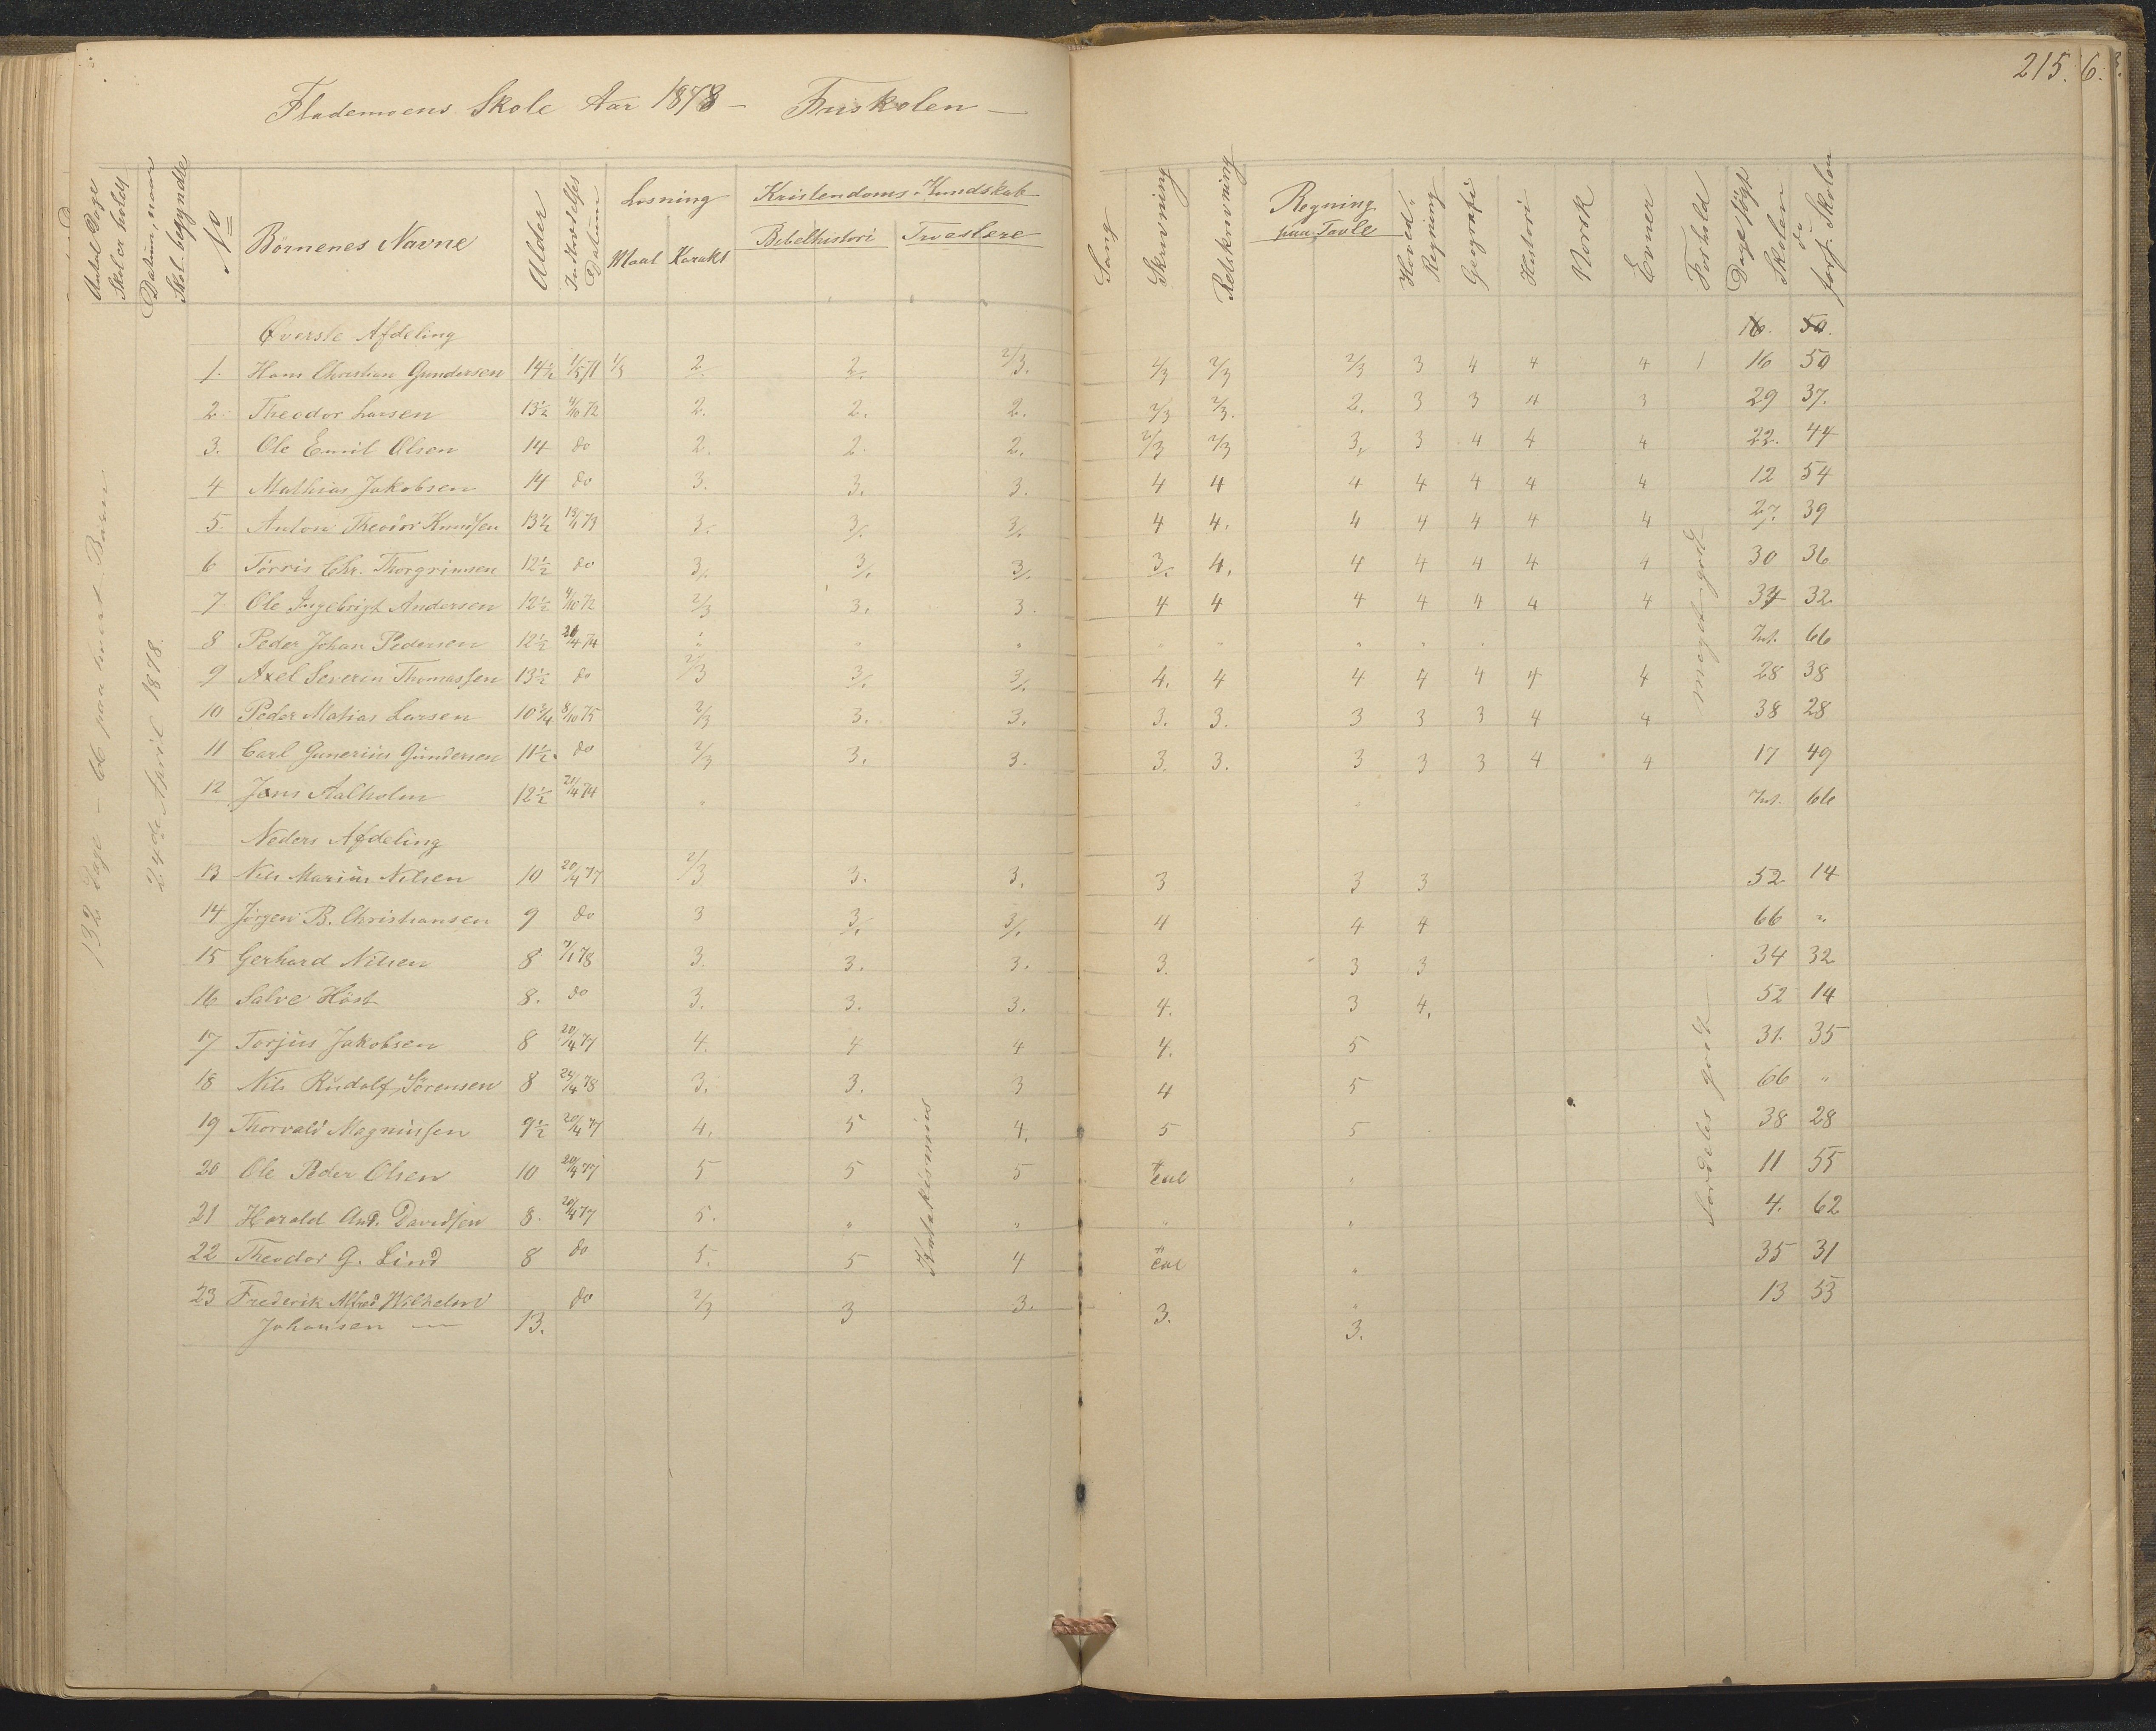 215. 6.
Flademoens Skole Aar 1878 - Friskolen -
Antal Dage Skol. er holdt
Datum, naar Skol. begyndte
No
Börnenes Navne
Alder
Indtrædelses Datum
Læsning
Maal Karakt
Kristendoms-Kundskab
Bibelhistori Troeslere
Sang
Skrivning
Retskrivning
Regning paa Tavle
Hoved-Regning
Geografi
Histori
Norsk
Evner
Forhold
Dage søgt Skolen
do fors. Skolen
132 Dage 66 paa hvert Barn
24de April 1878.
Øverste Afdeling 16. 50.
1. Hans Christian Gundersen 14½ 1/5 71 1/3 2. 2. 2/3. 2/3 2/3 2/3 3 4 4 4 1 16 50
2. Theodor Larsen 13½ 4/10 72 2. 2. 2. 2/3 2/3. 2. 3 3 4 3 29 37.
3. Ole Emil Olsen 14 do 2. 2. 2. 2/3 2/3 3. 3 4 4 4 22. 44
4 Mathias Jakobsen 14 do 3. 3. 3. 4 4 4 4 4 4 4 12 54
5. Anton Theodor Knudsen 13½ 13/1 73 3. 3/. 3/. 4 4. 4 4 4 4 4 27. 39
6 Törris Chr. Thorgrimsen 12½ do 3/. 3/. 3/. 3/. 4. 4 4 4 4 4 30 36
7. Ole Ingebrigt Andersen 12½ 4/10 72 2/3 3. 3. 4 4 4 4 4 4 4 34 32
8 Peder Johan Pedersen 12½ 20/4 74 " " " " " " " " 66
9 Axel Severin Thomassen 13½ do 2/3 3/. 3/. 4. 4 4 4 4 4 4 28 38
10 Peder Matias Larsen 10¾ 8/10 75 2/3 3. 3. 3. 3. 3 3 3 4 4 38 28
11 Carl Gunerius Gundersen 11½ do 2/3 3. 3. 3. 3. 3 3 3 4 4 17 49
12 Jens Aalholm 12½ 20/4 74 " " 66
meget godt
Neders Afdeling
13 Nils Marius Nilsen 10 20/4 77 2/3 3. 3. 3 3 3 52 14
14 Jörgen B. Christiansen 9 do 3 3/. 3/. 4 4 4 66 "
15 Gerhard Nilsen 8 7/1 78 3. 3. 3. 3. 3 3 34 32
16 Salve Höst 8. do 3. 3. 3. 4. 3 4. 52 14
17 Torjus Jakobsen 8 20/4 77 4. 4 4 4. 5 31. 35
18 Nils Rudolf Sörensen 8 24/4 78 3. 3. 3 4 5 66 "
19 Thorvald Magnussen 9½ 20/4 77 4. 5 4. 5 5 38 28
20 Ole Peder Olsen 10 20/4 77 5 5 5 " 11 55
21 Harald And. Davidsen 8. 20/4 77 5. " " " " 4. 62
22 Theodor G. Lind 8 do 5. 5 4 " 35 31
23 Frederik Alfred Wilhelm do 2/3 3 3. 3. " 13 53
Johansen — 13. 3.
Katekismus
Særdeles godt